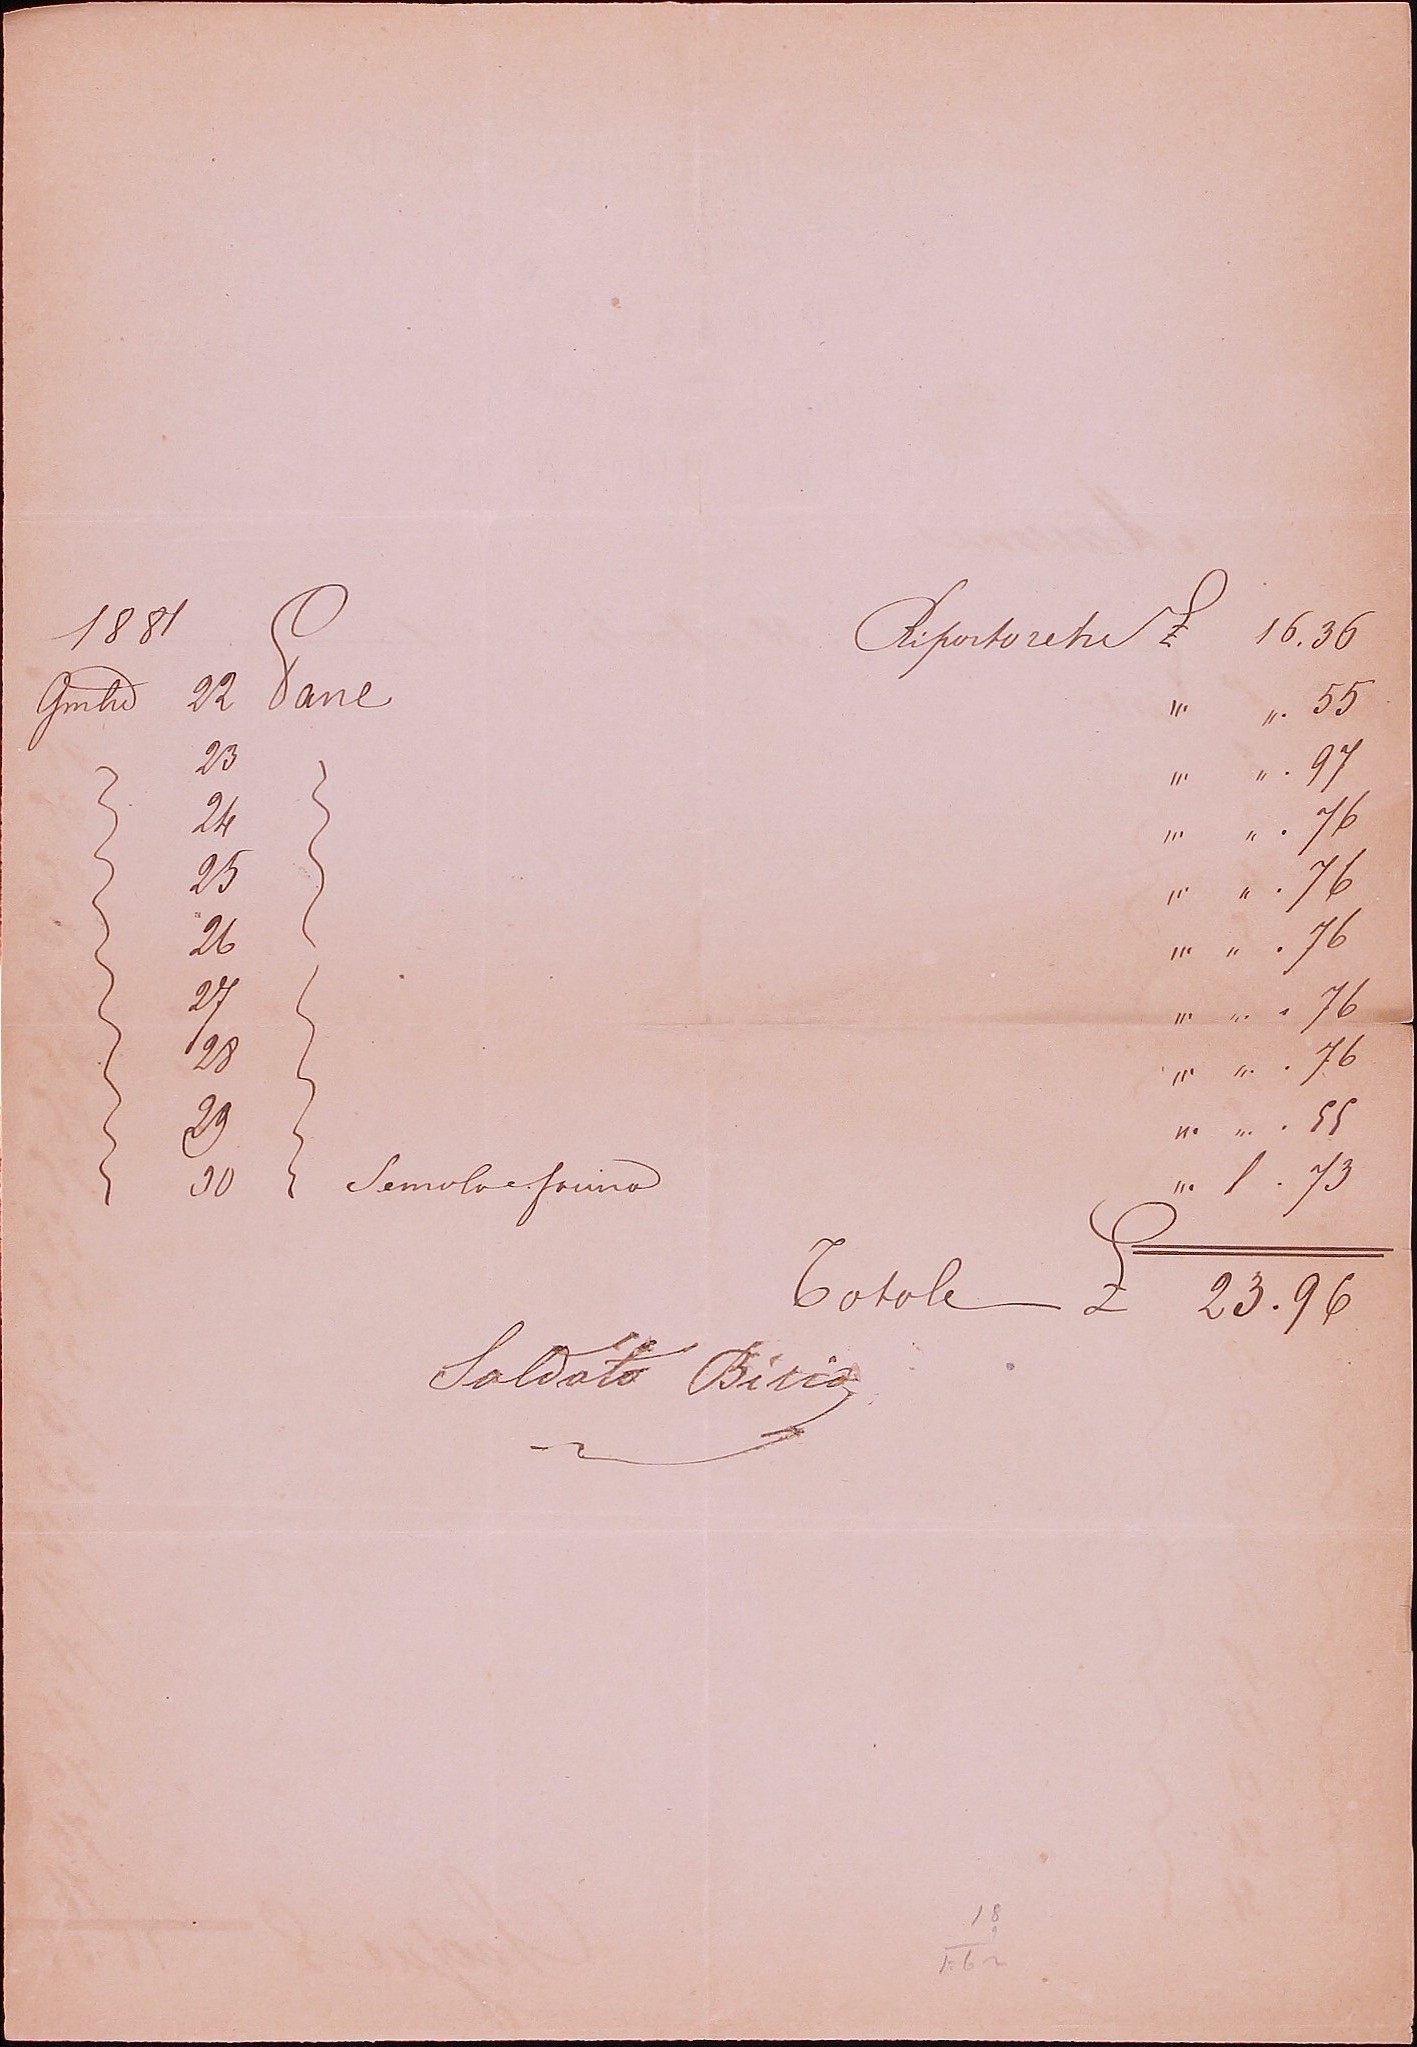 1881 Riportoretre £ 16.36
22 Pane "' ". 55
23 "' " . 97
24 "' " . 76
25 "' " . 76
26 "' " . 76
27 "' " . 76
28 "' " . 76
29 "' " . 55
30 Semola e farina "' 1 . 73
Totale £ 23.96
Soldato Bisio
18
9
162